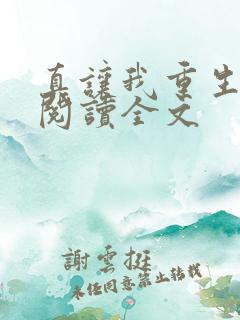 真讓我重生
閱讀全文
謝雲挺
未经同意禁止转载